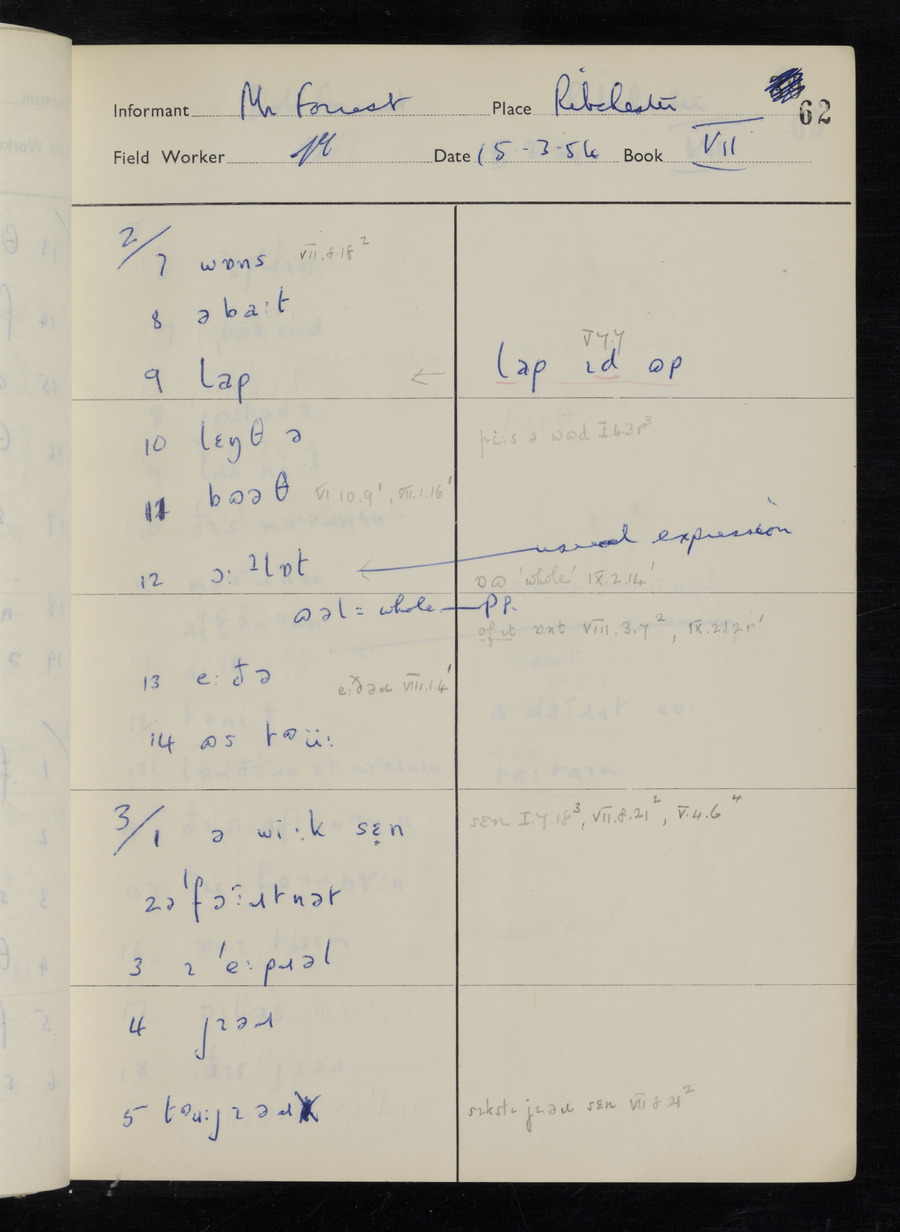 Informant Mr Forrest Place Ribchester 62
Field Worker Date 15-3-54 Book VII
2/7 wɒns VII.8.18²
8 əbaːt
9 lap ← lap ɪd ɷp V.7.7
10 lɛŋθ ə
11 bɷəθ VI.10.9¹, VII.1.16¹
12 ɔː ˡlɒt ← usual expression
ɒɷ 'whole' IX.2.14¹
ɷəl = whole — pp.
of it ɒnt VIII.3.7², IX.2.12r¹
13 eːðə eːðəɹ VIII.1.4¹
14 ɷs
3/1 ə wiːk sɛn sɛn I.7.18³, VII.8.21², V.4.6⁴
2 əˈfɔːɹtnət
3 ɪˈeːpɹəl
4 jɪəɹ
5 sɛn VII.8.21²